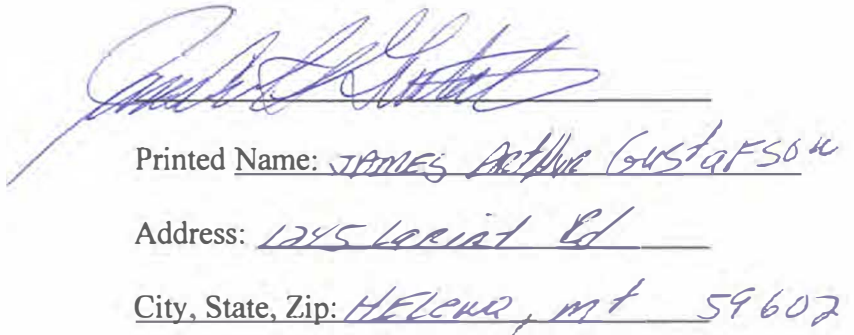 Printed Name: JAMES Arthur GustaFSON
Address: 1245 Lariat Rd
City, State, Zip: HELena, mt 59602